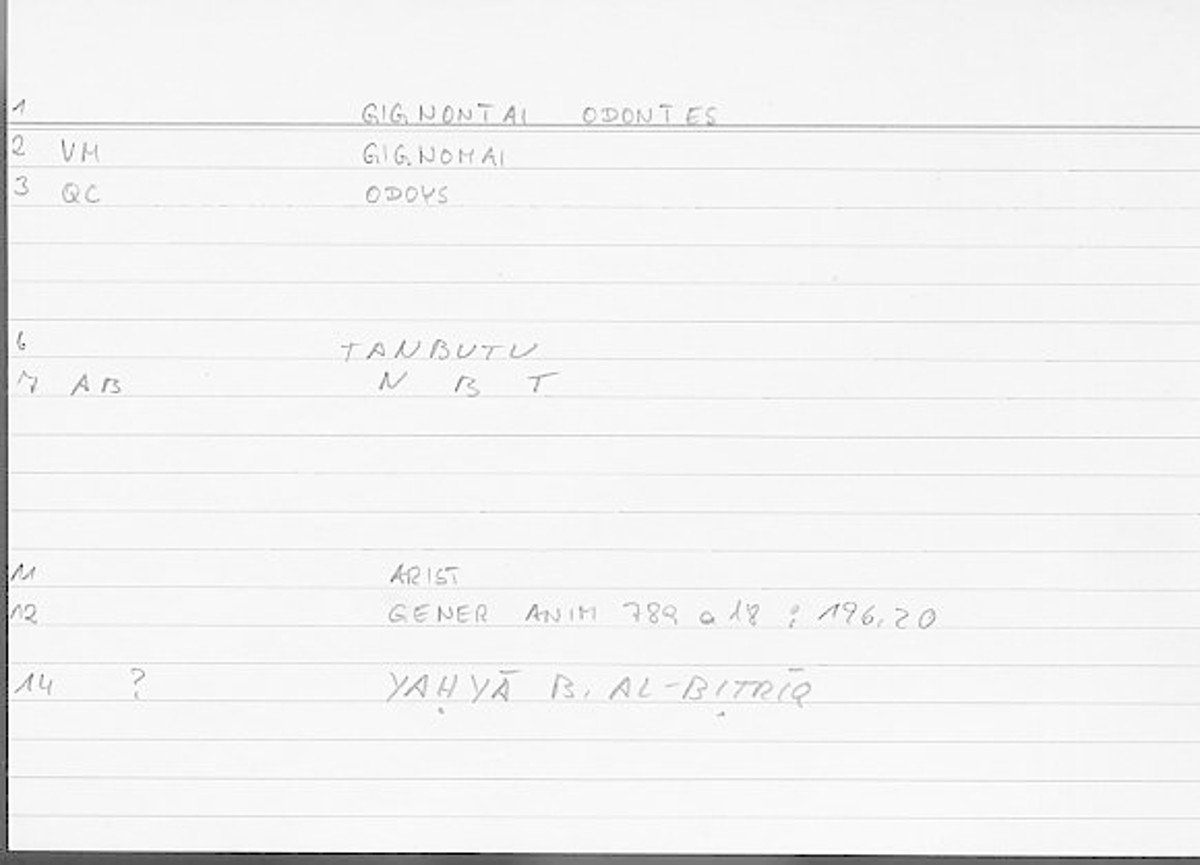 1 GIGNONTAI ODONTES
2 VM GIGNOMAI
3 QC ODOYS
6 TANBUTU
7 AB N B T
11 ARIST
12 GENER ANIM 789 a 18 ; 196,20
14 ? YAḤYĀ B. AL-BIṬRĪQ